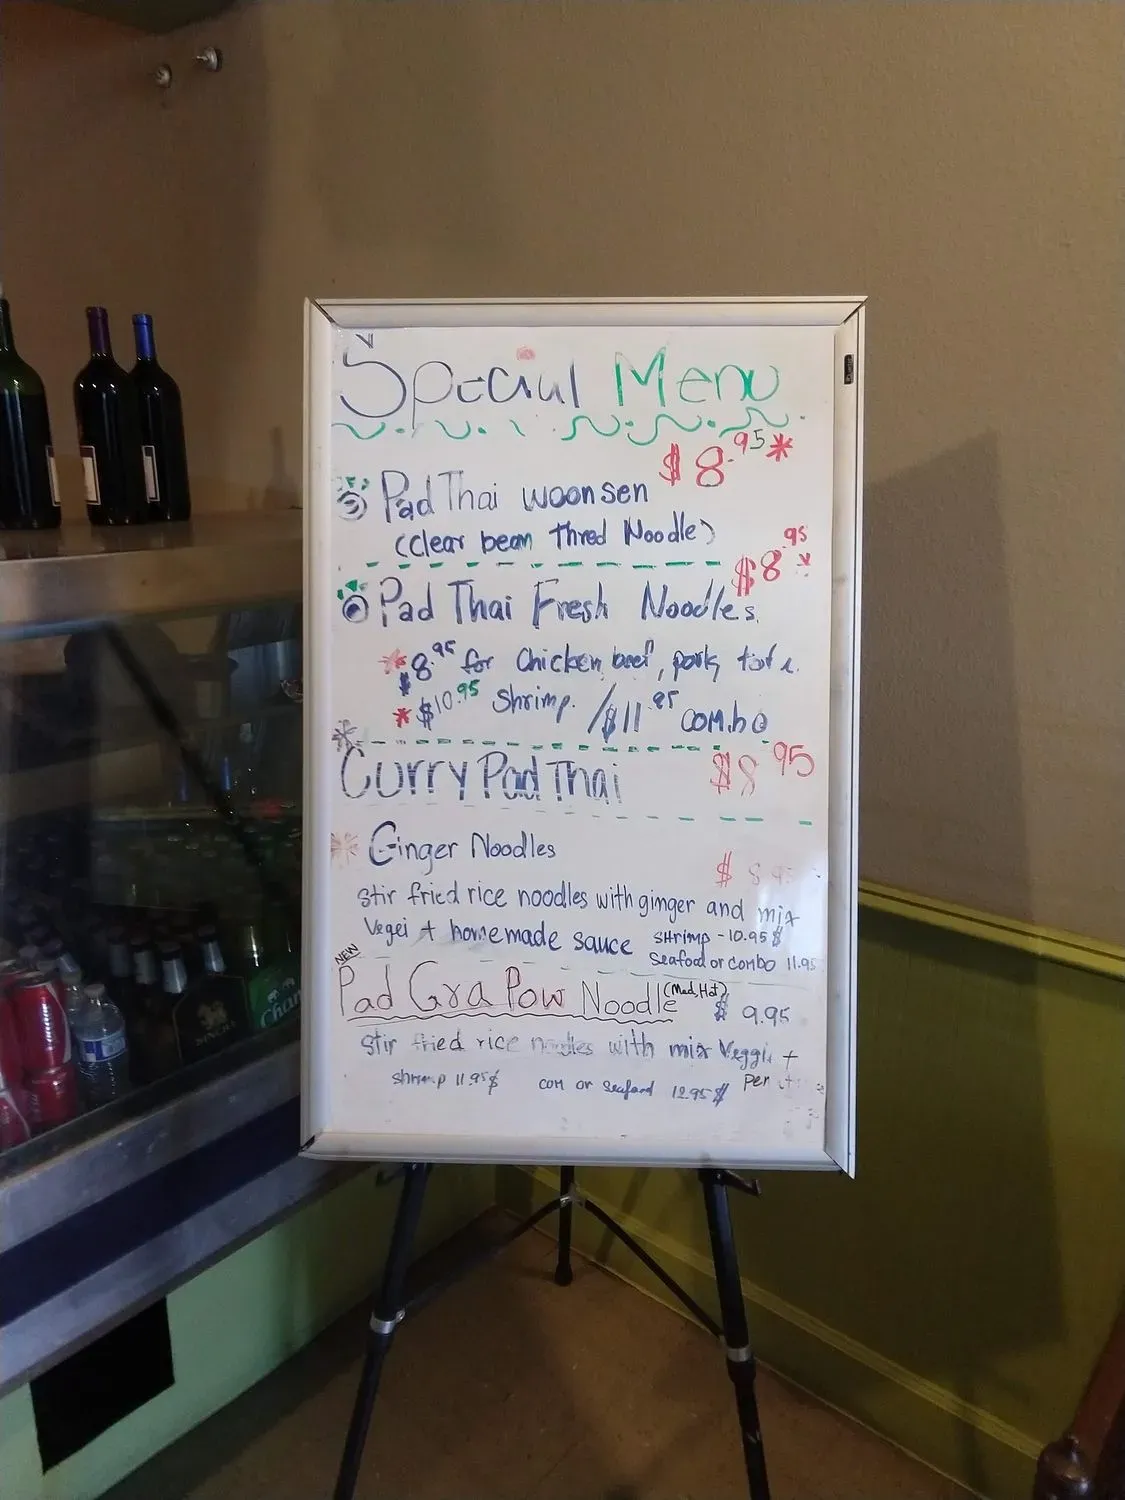 Special Menu
$8.95*
Pad Thai woonsen
(clear bean thred Noodle)
$8.95*
Pad Thai Fresh Noodles.
* $8.95 for chicken, beef, pork,
* $10.95 Shrimp. /$11.95 combo
* Curry Pad Thai $8.95
* Ginger Noodles $8.95
stir fried rice noodles with ginger and mix
Vegei + homemade sauce SHrimp - 10.95$
Seafood or combo 11.95
NEW
Pad Gra Pow Noodle (Mad, Hot) $ 9.95
Stir fried rice noodles with mix Veggii +
shrimp 11.95$ com or seafood 12.95$
SINGHA
Chang